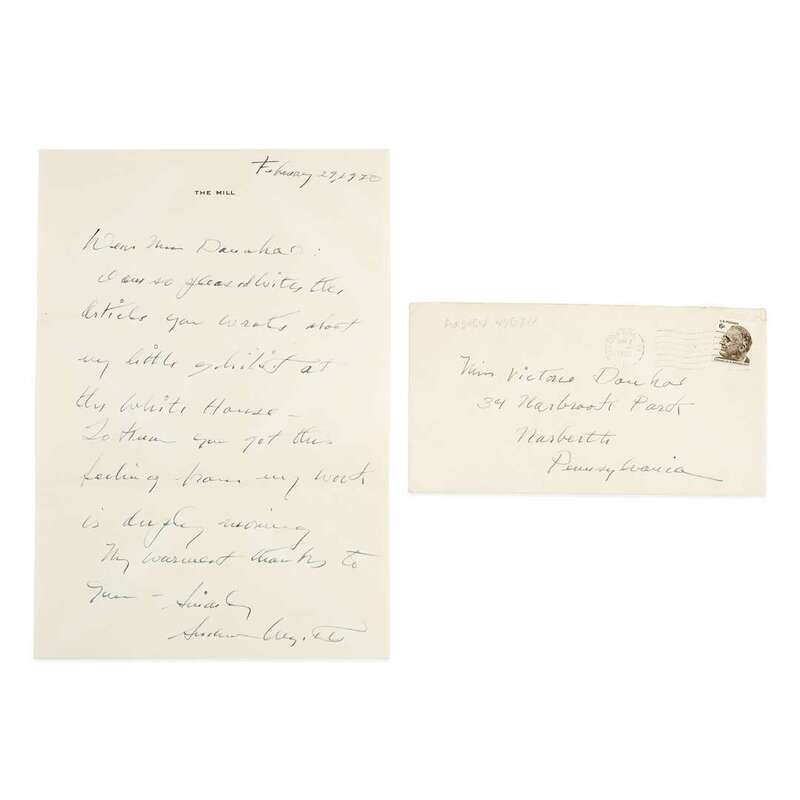 February 27, 1970
THE MILL
Dear Miss Donohoe:
I am so pleased with the
article you wrote about
my little exhibit at
the White House –
To know you got this
feeling from my work
is deeply moving
My warmest thanks to
you – Sincerely
Andrew Wyeth
Miss Victoria Donohoe
34 Narbrook Park
Narberth
Pennsylvania
6¢